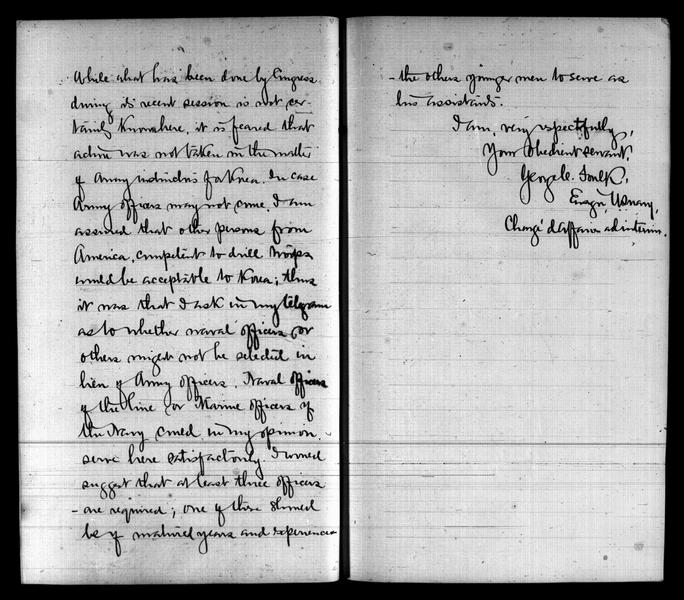 While what has been done by Congress
during its recent session is not cer-
tainly known here, it is feared that
action was not taken in the matter
of Army instructors for Korea. In case
Army officers may not come, I am
assured that other persons from
America, competent to drill troops
would be acceptable to Korea; thus
it was that I ask in my telegram
as to whether naval officers or
others might not be selected in
lieu of Army officers. Naval officers
of the line or Marine officers of
the Navy could, in my opinion,
serve here satisfactorily. I would
suggest that at least three officers
- are required; one of these should
be of matured years and experience
- the others younger men to serve as
his assistants.
I am, very respectfully,
Your obedient servant,
George C. Foulk,
Ensign, U.S. Navy,
Chargé d'affaires ad interim.